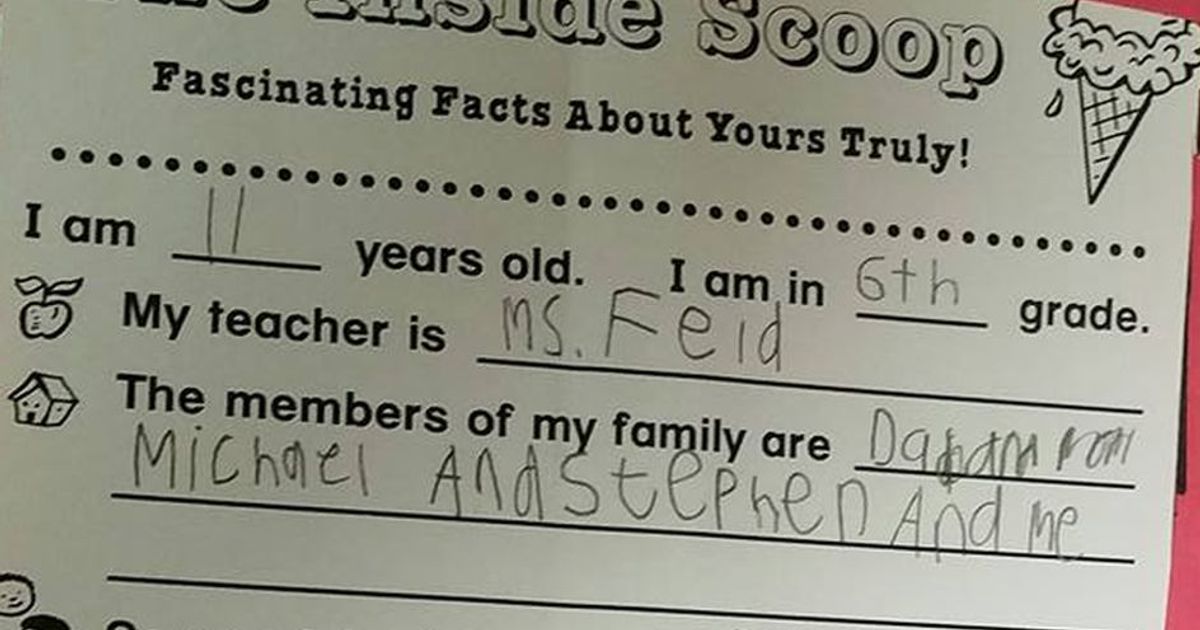 Inside Scoop
Fascinating Facts About Yours Truly!
I am 11 years old. I am in 6th grade.
My teacher is Ms. Feid
The members of my family are
Michael And Stephen And me